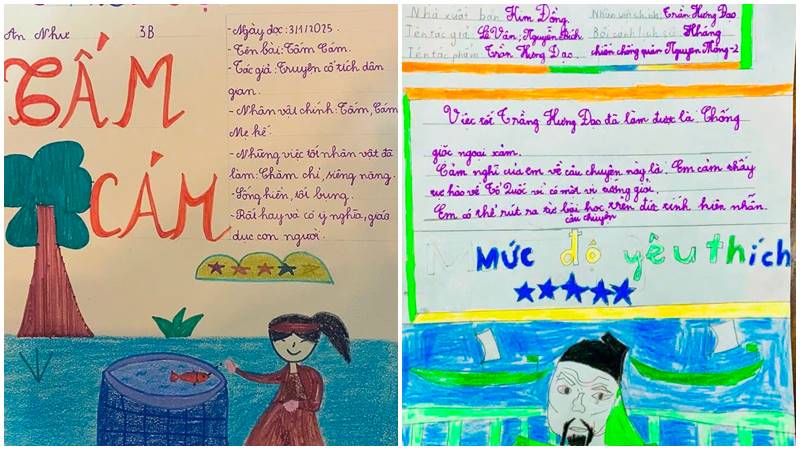 An Như
3B
TẤM
CÁM
- Ngày đọc: 3/1/2025.
- Tên bài: Tấm Cám.
- Tác giả: Truyện cổ tích dân
gian.
- Nhân vật chính: Tấm, Cám
Mẹ kế.
- Những việc tốt nhân vật đã
làm: Chăm chỉ, siêng năng.
- Sống hiền, tốt bụng.
- Rất hay và có ý nghĩa, giáo
dục con người.
Nhà xuất bản Kim Đồng.
Nhân vật chính: Trần Hưng Đạo
Tên tác giả Lê Vân, Nguyễn Bích
Bối cảnh lịch sử: Kháng
Tên tác phẩm Trần Hưng Đạo
chiến chống quân Nguyên Mông-2
Việc tốt Trần Hưng Đạo đã làm được là: Chống
giặc ngoại xâm.
Cảm nghĩ của em về câu chuyện này là: Em cảm thấy
tự hào về Tổ Quốc vì có một vị tướng giỏi.
Em có thể rút ra từ câu chuyện bài học trên đức tính hiền nhẫn.
Mức độ yêu thích